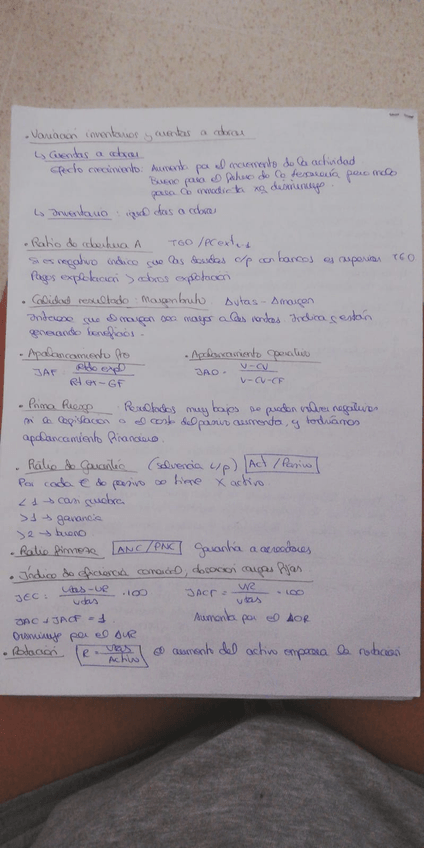 · Variación inventarios y cuentas a cobrar
↳ Cuentas a cobrar
Efecto crecimiento: Aumenta por el incremento de la actividad
Bueno para el futuro de la tesorería pero malo
para la inmediata xq disminuye.
↳ Inventario: igual ctas a cobrar
· Ratio de cobertura A TGO / PCext
Si es negativo indica que las deudas c/p con bancos es superior TGO
Pagos explotación > cobros explotación
· Calidad resultado: Margen bruto. Δvtas - Δmargen
Interesa que el margen sea mayor a las ventas. Indica q están
generando beneficios.
· Apalancamiento fro · Apalancamiento operativo
IAF = Rtdo expl / Rt ex-GF IAO = V-CV / V-CV-CF
· Prima Riesgo: Resultados muy bajos se pueden volver negativos
si la legislación o el coste del pasivo aumenta, y
apalancamiento financiero.
· Ratio de Garantía (solvencia l/p) Act / Pasivo
Por cada € de pasivo se tiene X activo
< 1 → casi quiebra
> 1 → garancia
> 2 → bueno
· Ratio firmeza ANC / PNC Garantía a acreedores
· Índice de eficiencia comercial, absorción cargas fijas
IEC = Vtas-UR / vtas · 100 IACF = UR / vtas · 100
IAC + IACF = 1 Aumenta por el ΔUR
Disminuye por el ΔUR
· Rotación R = Vtas / Activo El aumento del activo empeora la rotación